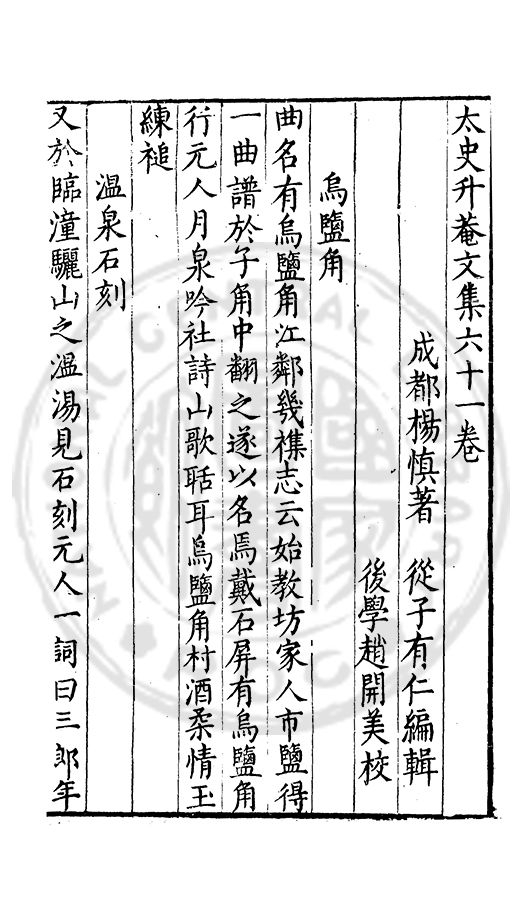 太史升菴文集六十一卷
成都楊慎著 從子有仁編輯
後學趙開美校
烏鹽角
曲名有烏鹽角江鄰幾襍志云始教坊家人市鹽得
一曲譜於子角中翻之遂以名焉戴石屏有烏鹽角
行元人月泉吟社詩山歌聒耳烏鹽角村酒柔情玉
練槌
溫泉石刻
又於臨潼驪山之溫湯見石刻元人一詞曰三郎年